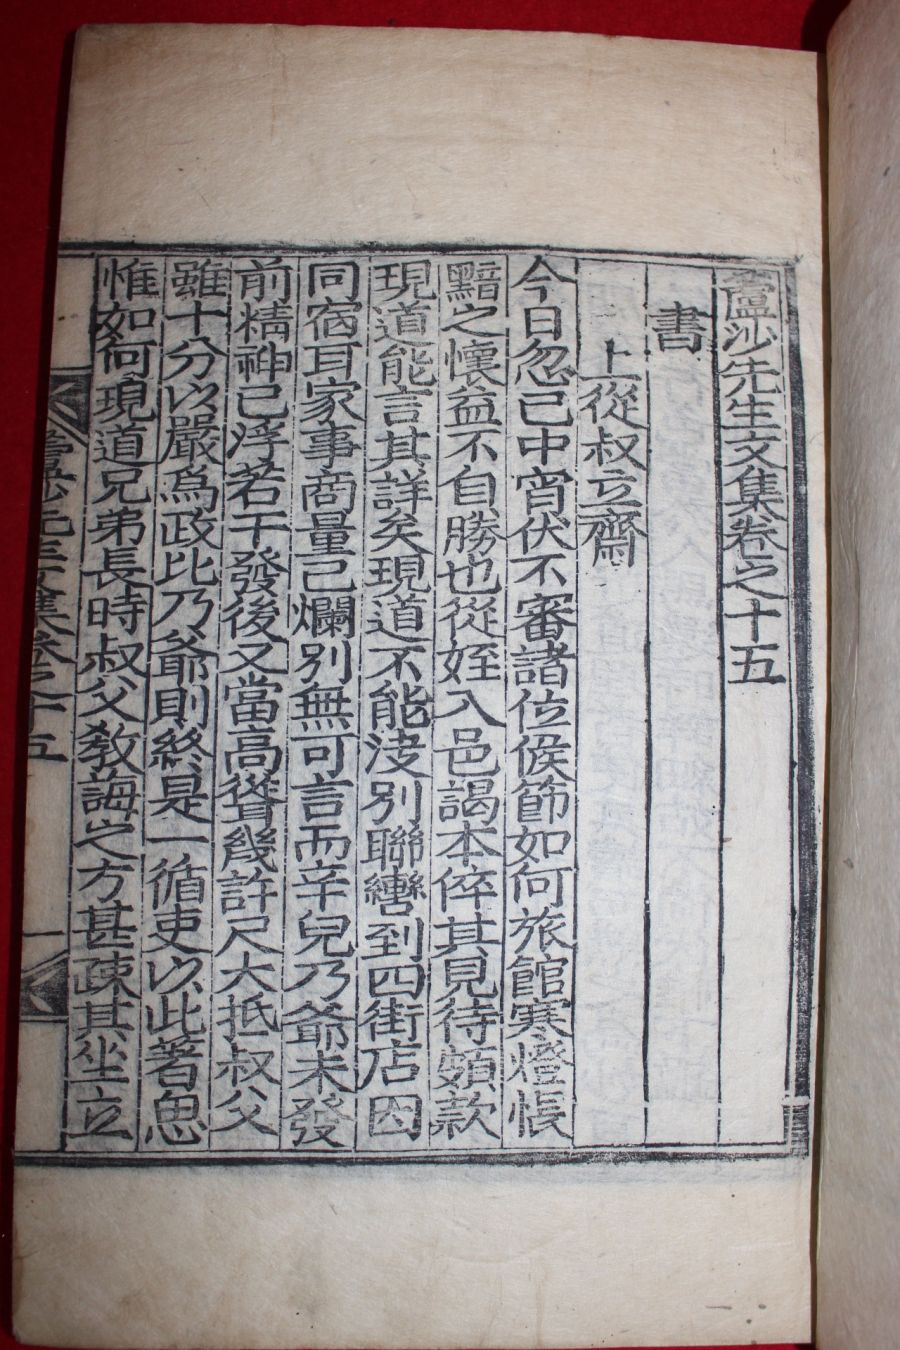 蘆沙先生文集卷之十五
書
上從叔立齋
今日忽已中宵伏不審諸位候節如何旅館寒燈悵
黯之懷益不自勝也從姪入邑謁本倅其見待頗款
現道能言其詳矣現道不能淩別聯轡到四街店因
同宿耳家事商量已爛別無可言而辛兒乃爺未發
前精神已浮若干發後又當高聳幾許尺大抵叔父
雖十分以嚴爲政比乃爺則終是一循吏以此著思
惟如何現道兄弟長時叔父敎誨之方甚疎其坐立
蘆沙先生文集卷之十五 一